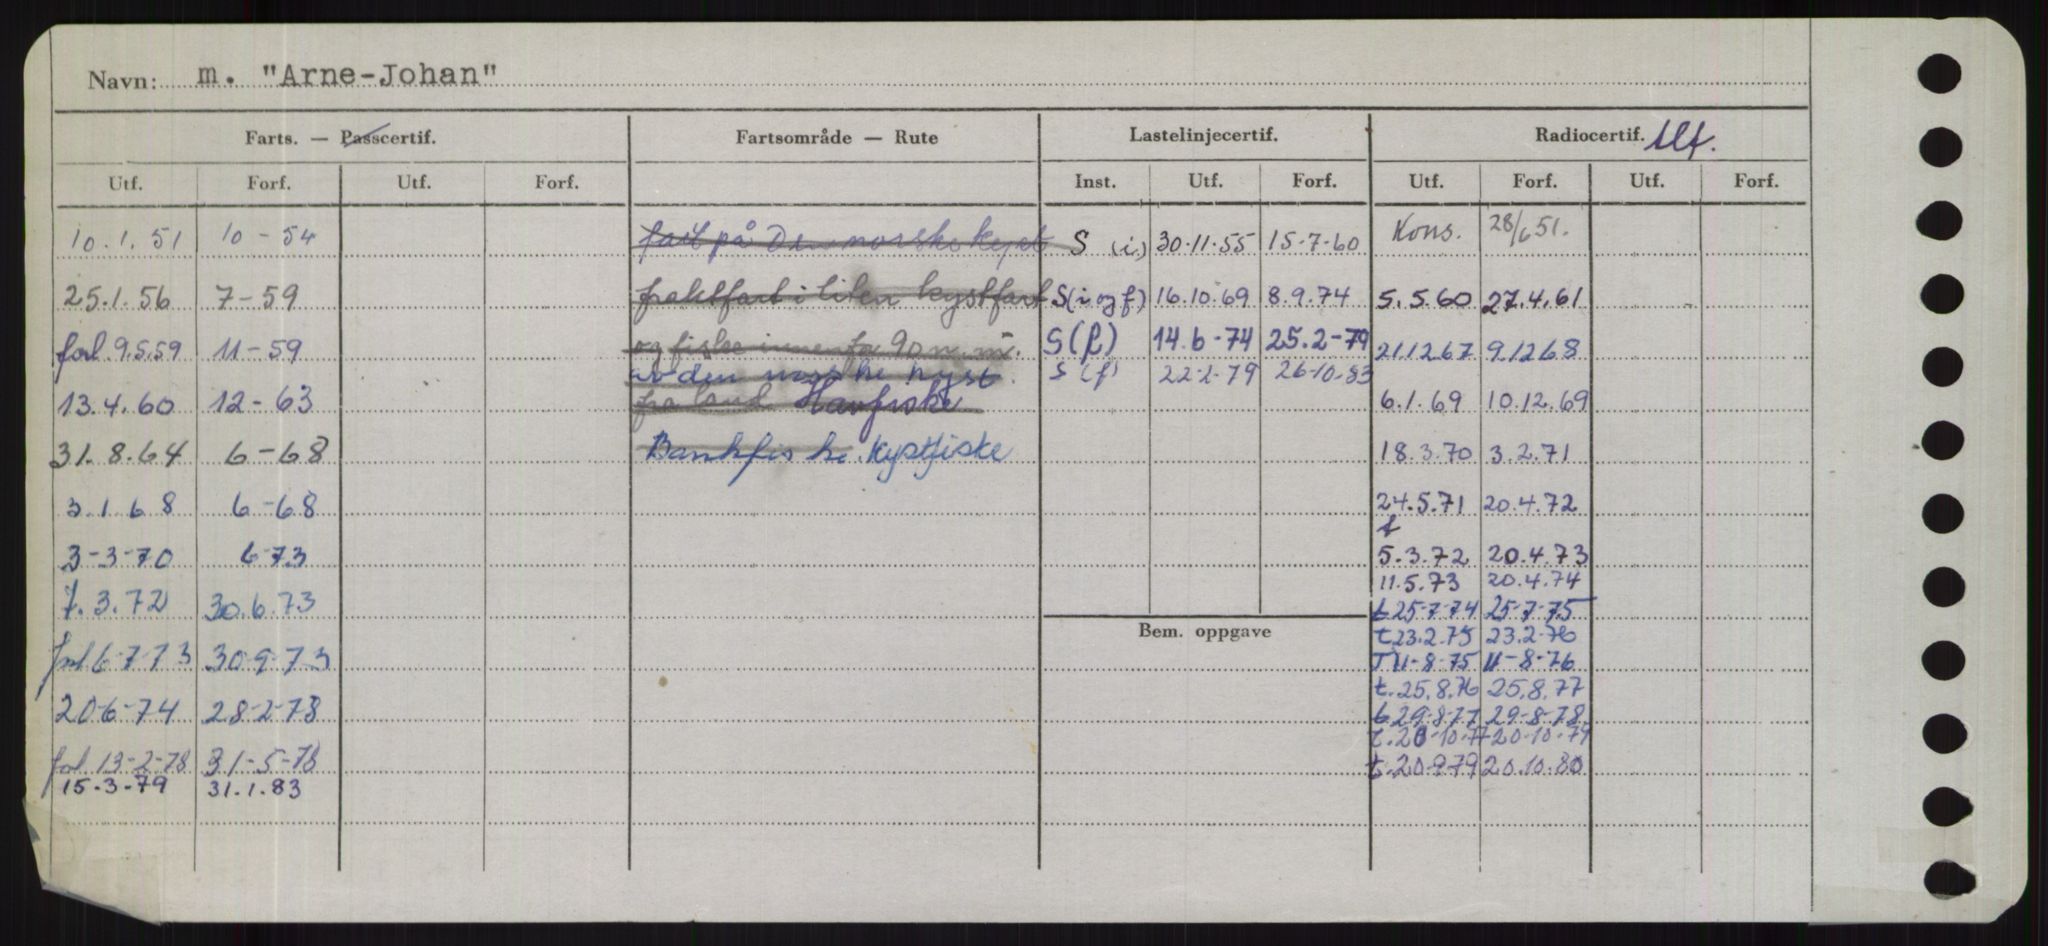 Navn: m. "Arne-Johan"
Farts. — Passcertif. Fartsområde — Rute Lastelinjecertif. Radiocertif. tlf.
Utf. Forf. Utf. Forf. Inst. Utf. Forf. Utf. Forf. Utf. Forf.
10.1.51 10-54 fart på Den norske kyst S (i) 30-11-55 15-7-60 Kons. 28/6 51.
25.1.56 7-59 fraktfart i liten kystfart S (i og f) 16.10.69 8.9.74 5.5.60 27.4.61
forl 9.5.59 11-59 og fiske innenfor 90 n.m. S (f) 14.6-74 25.2-79 21.12.67 9.12.68
av den norske kyst. S (f) 22-2-79 26-10-83
13.4.60 12-63 fra land Havfiske 6.1.69 10.12.69
31.8.64 6-68 Bankfiske. Kystfiske 18.3.70 3.2.71
3.1.68 6-68 24.5.71 20.4.72
t
3-3-70 6-73 5.3.72 20.4.73
11.5.73 20.4.74
7.3.72 30.6.73 t 25-7-74 25-7-75
t 23.2.75 23.2-76
forl 6-7-73 30-9-73 T 11-8-75 11-8-76
t. 25.8.76 25.8.77
20-6-74 28-2-78 t 29-8-77 29-8-78
t. 20-10-77 20-10-79
forl. 13-2-78 31-5-78 t. 20-9-79 20.10.80
15.3-79 31.1.83
Bem. oppgave